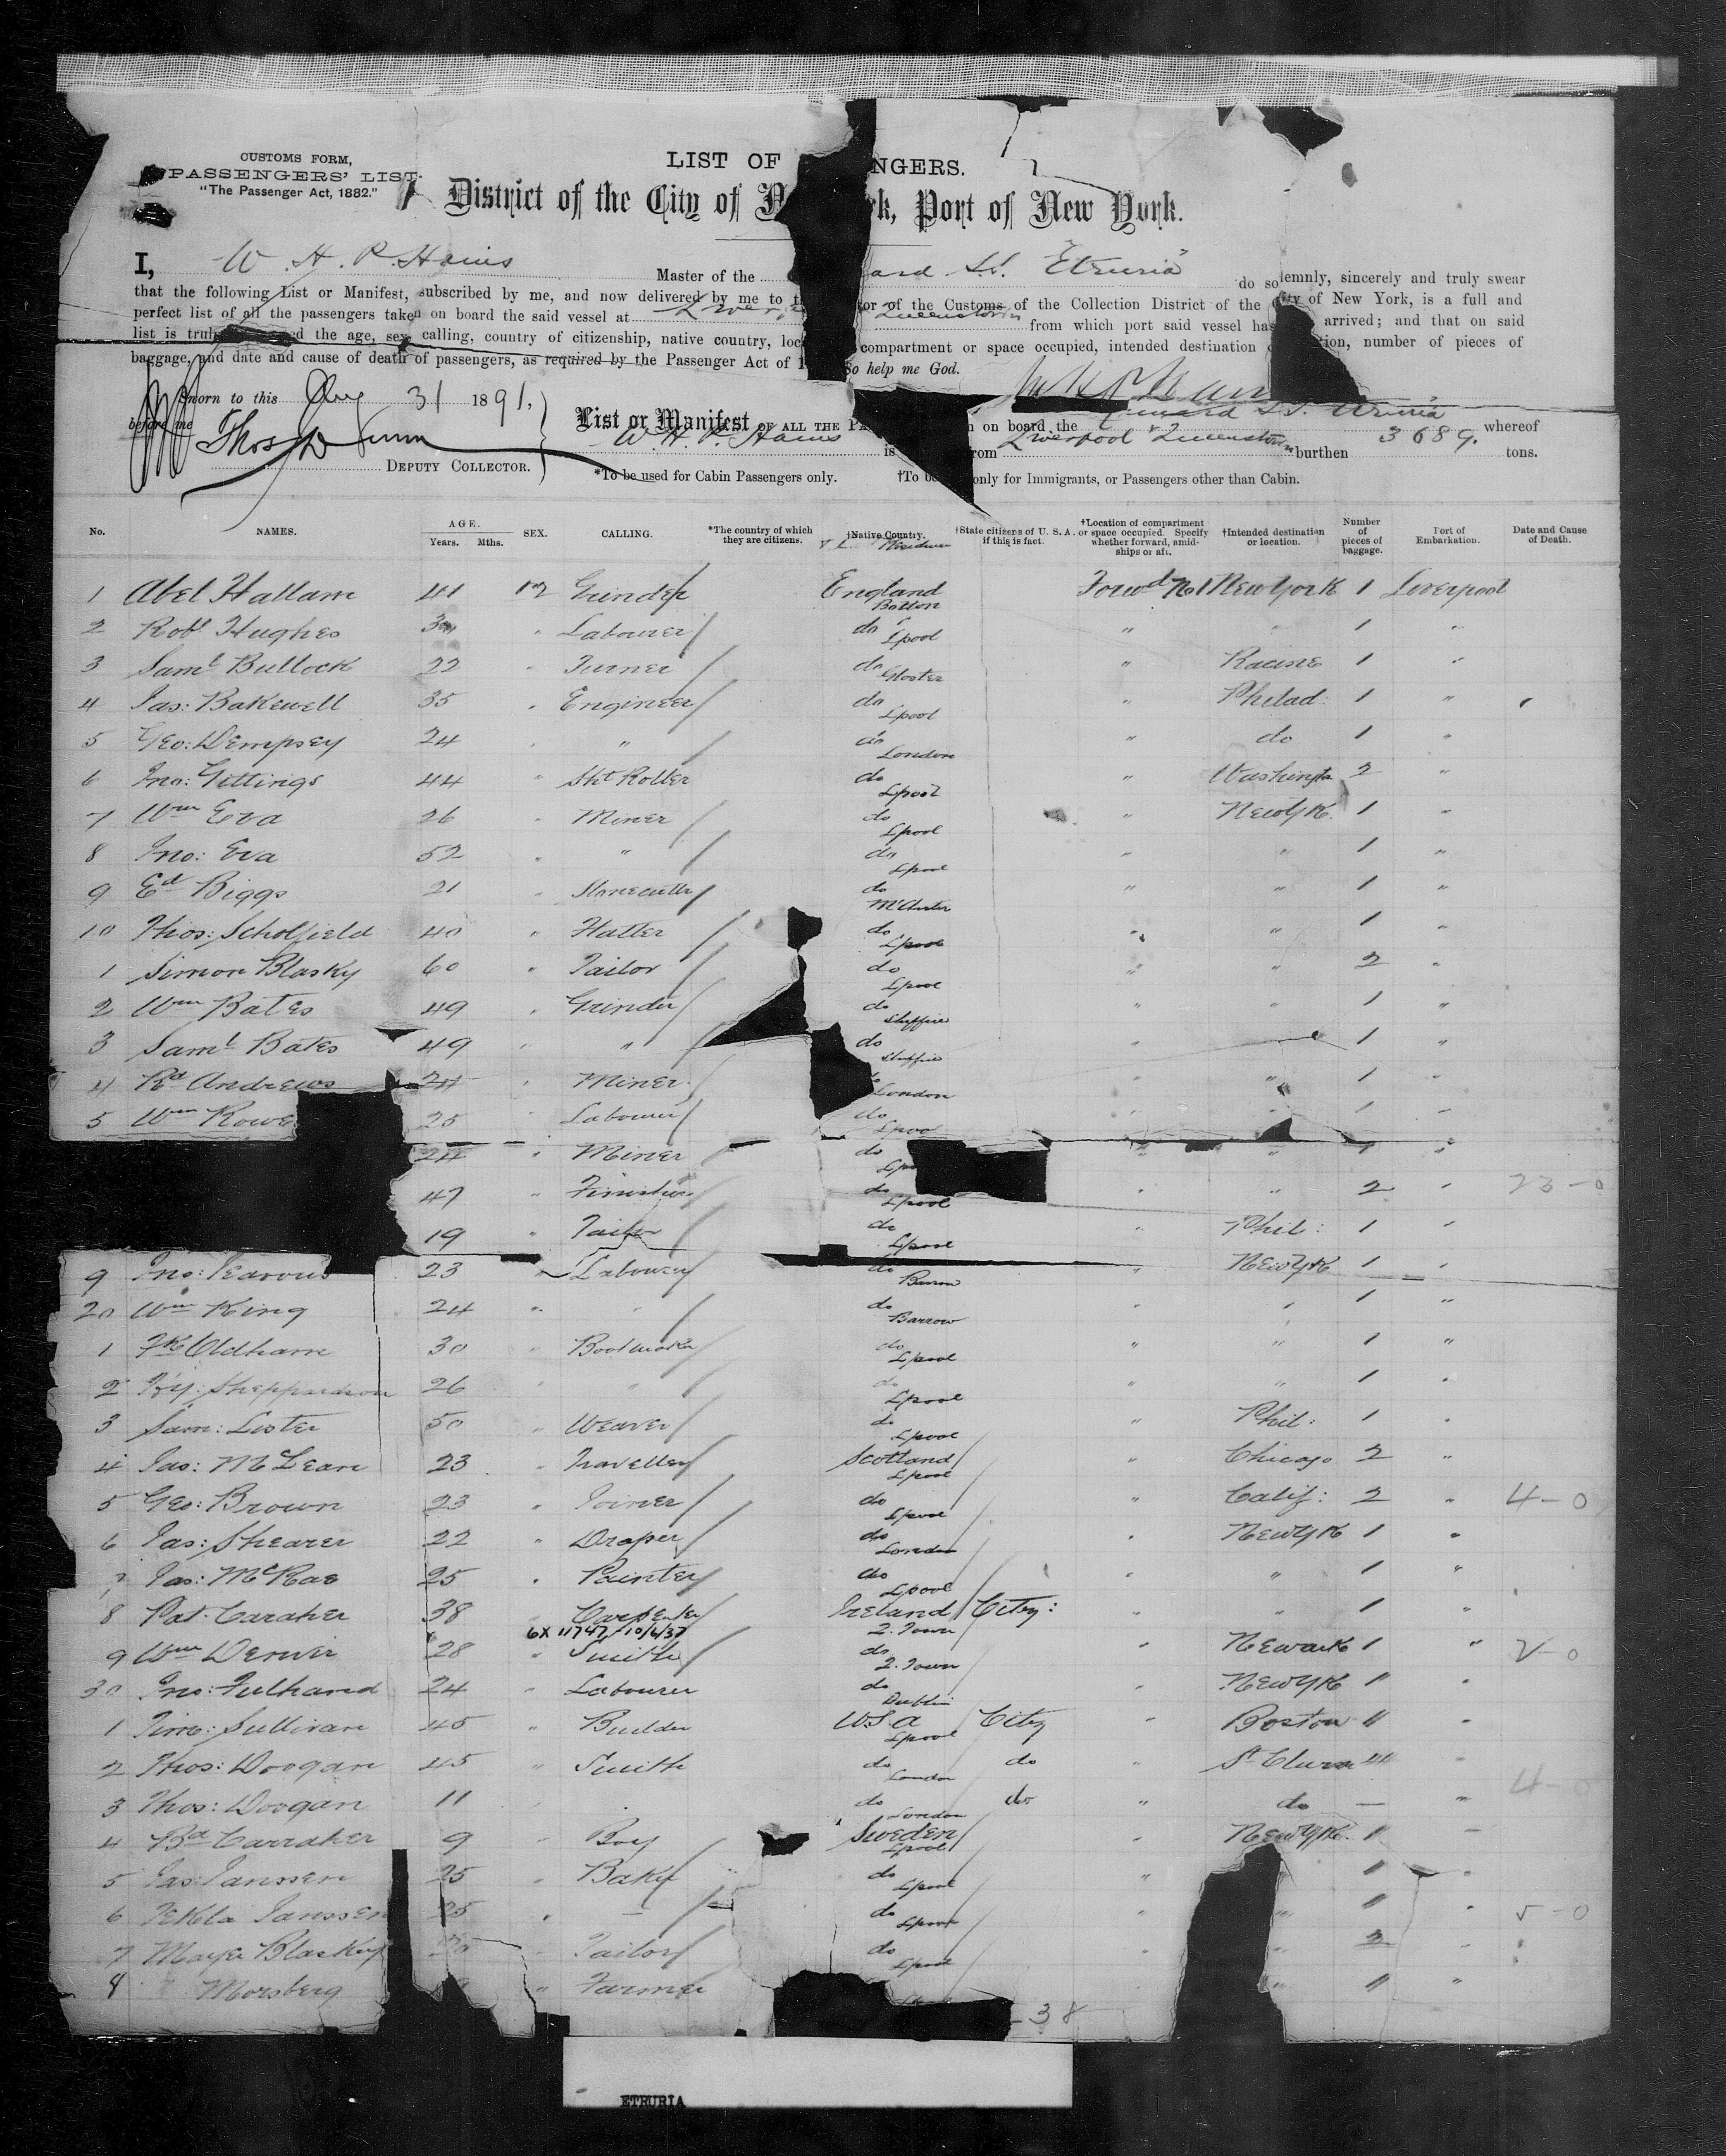 CUSTOMS FORM,
PASSENGERS' LIST.
"The Passenger Act, 1882."
LIST OF NGERS.
District of the City of N rk, Port of New York.
I, W. H. P. Hains Master of the ard S.S. "Etruria" do solemnly, sincerely and truly swear
that the following List or Manifest, subscribed by me, and now delivered by me to t tor of the Customs of the Collection District of the City of New York, is a full and
perfect list of all the passengers taken on board the said vessel at Liver Queenstown from which port said vessel has arrived; and that on said
list is truly d the age, sex, calling, country of citizenship, native country, loc compartment or space occupied, intended destination tion, number of pieces of
baggage, and date and cause of death of passengers, as required by the Passenger Act of 1 So help me God.
Sworn to this Aug 31 1891,
before me Thos Dunn
DEPUTY COLLECTOR.
List or Manifest OF ALL THE PA n on board the Cunard S.S. Etruria whereof
W. H. P. Hains is rom Liverpool & Queenstown burthen 3689. tons.
*To be used for Cabin Passengers only. †To be only for Immigrants, or Passengers other than Cabin.
No. NAMES. AGE. Years. Mths. SEX. CALLING. *The country of which they are citizens. †Native Country. †State citizens of U. S. A. if this is fact. †Location of compartment or space occupied. Specify whether forward, amidships or aft. †Intended destination or location. Number of pieces of baggage. Port of Embarkation. Date and Cause of Death.
1 Abel Hallam 41 m Grinder England Bolton Forwd No1 New York 1 Liverpool
2 Robt Hughes " Labourer do Lpool " " 1 "
3 Saml Bullock 22 " Turner do Gloster " Racine 1 "
4 Jas: Bakewell 35 " Engineer do Lpool " Philad. 1 "
5 Geo: Dempsey 24 " " do London " do 1 "
6 Jno: Gittings 44 " Sht Roller do Lpool " Washingtn 2 "
7 Wm Eva 26 " Miner do Lpool " NewYk. 1 "
8 Jno: Eva 52 " " do Lpool " " 1 "
9 Ed Biggs 21 " Stonecutter do M'Chester " " 1 "
10 Thos: Scholfield 40 " Hatter do Lpool " " 1 "
1 Simon Blasky 60 " Tailor do Lpool " " 2 "
2 Wm Bates 49 " Grinder do Sheffield " " 1 "
3 Saml Bates 49 " " do Sheffield " 1 "
4 Rd Andrews 24 " Miner London " " 1 "
5 Wm Rowe 25 " Labourer do Lpool " " 1 "
24 " Miner do Lpo " " 1 "
47 " Finisher do Lpool " " 2 " 23-0
19 " Tailor do Lpool " Phil: 1 "
9 Jno: 23 " Labourer do Barrow " NewYk 1 "
20 Wm King 24 " " do Barrow " " 1 "
1 Fk Oldham 30 " Bootmaker do Lpool " " 1 "
2 Hy: Sheppardson 26 " " do Lpool " " 1 "
3 Sam: Lister 50 " Weaver do Lpool " Phil: 1 "
4 Jas: McLean 23 " Traveller Scotland Lpool " Chicago 2 "
5 Geo: Brown 23 " Joiner do Lpool " Calif: 2 " 4-0
6 Jas: Shearer 22 " Draper do London " NewYk 1 "
7 Jas: McRae 25 " Painter do Lpool " " 1 "
8 Pat. Caraher 38 " Carpenter Ireland Q. Town City: " 1 "
6X 11747 - 10/6/37
9 Wm Denvir 28 " Smith do Q. Town " Newark 1 " 2-0
30 Jno: Fulhand 24 " Labourer do Dublin " NewYk 11 "
1 Tim: Sullivan 45 " Builder USA Lpool City " Boston 11 "
2 Thos: Doogan 45 " Smith do London do " " 4-0
3 Thos: Doogan 11 do London do " do — "
4 Bd Carraher 9 " Boy Sweden Lpool " NewYk. 11 "
5 Jas: Janssen 25 " Baker do Lpool " " 11 "
6 Tekla Janssen 25 " — do Lpool " " 11 " 5-0
7 Blaskey " Tailor do Lpool " " 2 "
8 Morsberg " Farmer " 11 "
38
ETRURIA